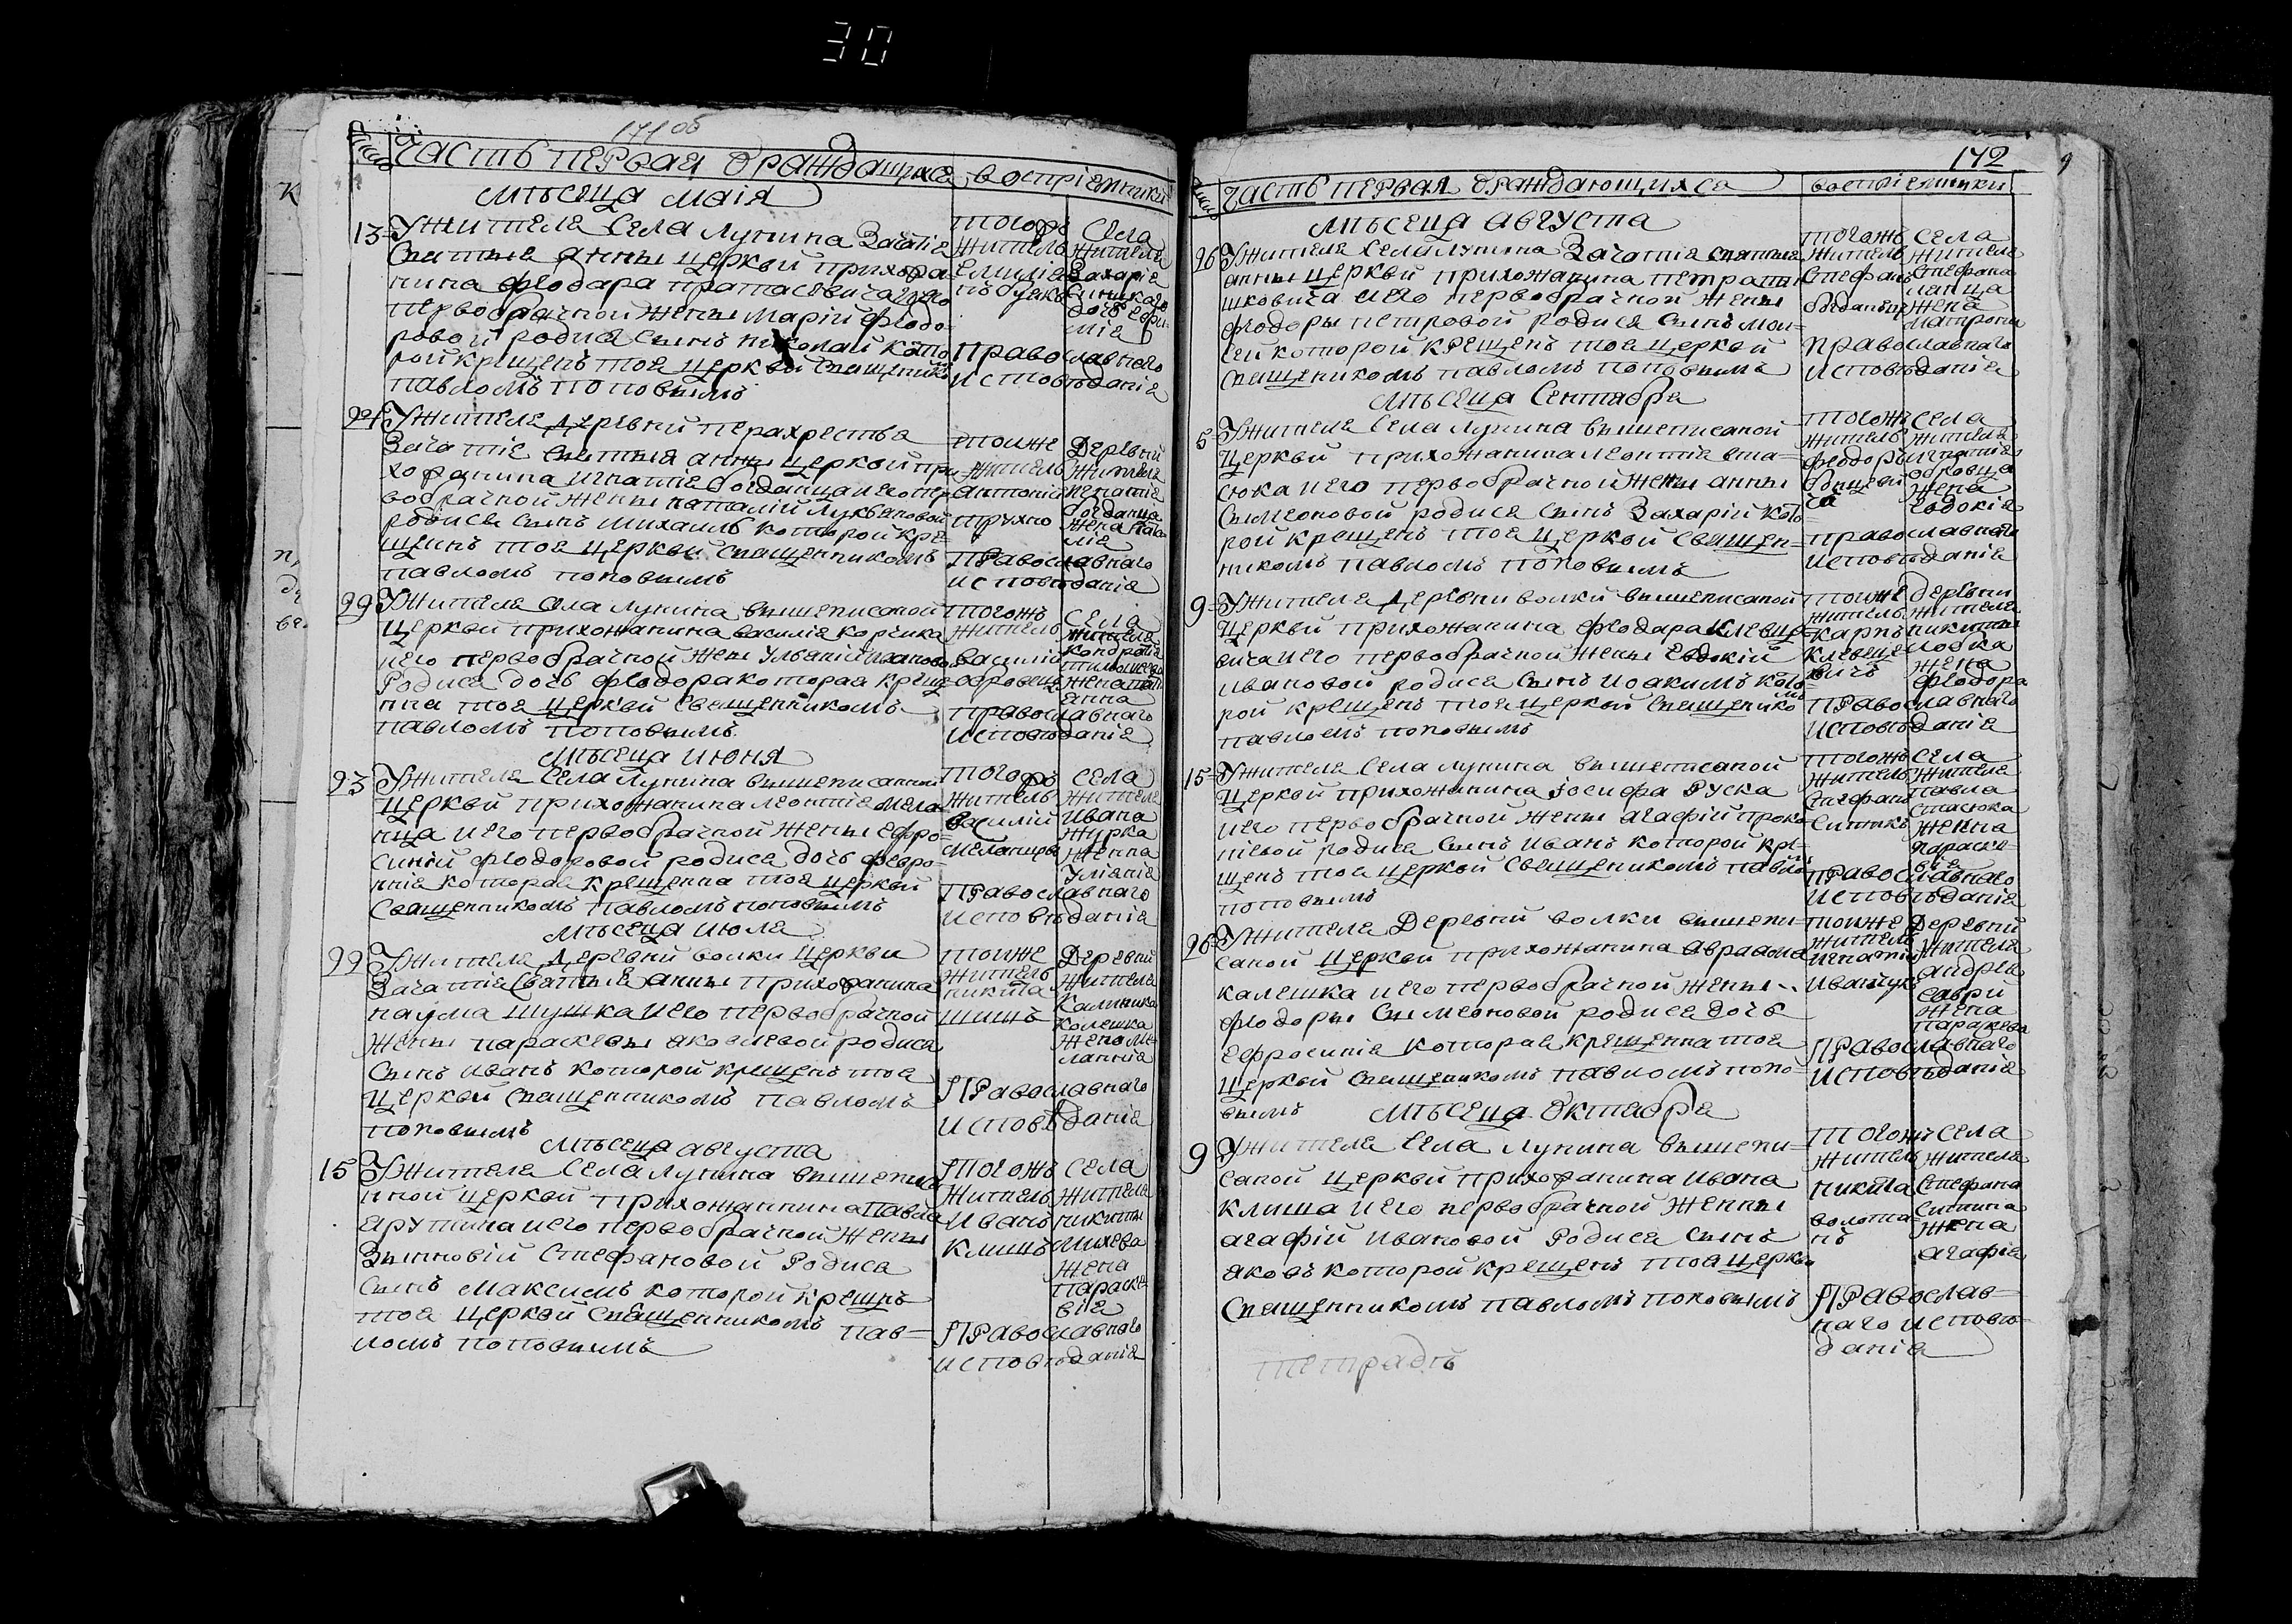 30
171 об
Часть первая ораждащихся
воспріемники
Мѣсеца маія
13
Ужителя Села Лунина Зачатіе
Святыя анны церквй прихожа
нина феодара протасевича иего
первобрачной жены Маріи феодо-
ровой родися Сынъ николай кото-
рой крещенъ тоя церквй священико
павломъ поповымъ
тогожъ Села
житель жителя
Захарія
православнаго
исповѣданія
24
Ужителя деревнй перахрества
Зачатіе Святыя анны церквй при-
хожанина игнатія богданца иегопер
вобрачной жены наталій Лукьяновой
родися Сынъ михаилъ которой кре-
щенъ тоя церквй священникомъ
павломъ поповымъ
тоиже деревнй
житель жителя
антоній игнатія
трухно богданца
жена ната
лія
православнаго
исповѣданія
29
Ужителя Села Лунина вышеписаной
церквй прихожанина василія корчика
иего первобрачной жены Ульяній ивановой
Родися дочь феодора которая креще
нна тоя церквй священникомъ
павломъ поповымъ
тогожъ Села
житель жителя
василій кондрата
жена
анна
православнаго
исповѣданія
Мѣсеца июня
23
Ужителя Села Лунина вышеписанной
церквй прихожанина леонтія мела
нца иего первобрачной жены ефро-
синій феодоровой родися дочь февро-
нія которая крещенна тоя церквй
Священникомъ павломъ поповымъ
тогожъ села
житель жителя
василій ивана
журка
женна
улианія
православнаго
исповѣданія
Мѣсеца июля
29
Ужителя деревнй волки церкви
Зачатія Святыя анны прихожанина
наума шушка иего первобрачной
жены параскевы яковлевой родися
Сынъ иванъ которой крещенъ тоя
церквй священникомъ павломъ
поповымъ
тоиже деревнй
житель жителя
никита калиника
шишъ колешка
жена ме-
ланнія
православнаго
исповѣданія
Мѣсеца августа
15
Ужителя Села Лунина вышеписа
нной церквй прихожаннина павла
ярутина иего первобрачной жены
Зѣновій Стефановой Родися
Сынъ максимъ которой крещнъ
тоя церквй священникомъ пав=
ломъ поповымъ
тогожъ села
житель жителя
иванъ никиты
клишъ михева
жена
параске
віа
православнаго
исповѣданія
172
Часть первая ораждающихся
воспріемники
Мѣсеца августа
26
Ужителя Села Лунина Зачатія святыя
анны церквй прихожанина петра
шковича иего первобрачной жены
феодоры петровой родися Сынъ мои-
сей которой крещенъ тоя церквй
священикомъ павломъ поповымъ
тогожъ села
житель жителя
Стефанъ Стефана
жена
матрона
православнаго
исповѣданія
Мѣсеца Сентября
5
Ужителя Села Лунина вышеписаной
Церквй прихожанина леонтія ста=
сюка иего первобрачной жены анны
Сымеоновой родися Сынъ Захарій кото
рой крещенъ тоя церквй священ=
никомъ павломъ поповымъ
тогожъ села
житель жителя
феодоръ игнатія
жена
евдокія
православнаго
исповѣданія
9
Ужителя деревни волки вышеписаной
церквй прихожанина феодара клевце
вича иего первобрачной жены Евдокій
ивановой родися Сынъ иоакимъ кото
рой крещенъ тоя церквй священико
мъ
павломъ поповымъ
тоиже деревни
житель жителя
карпъ никиты
клевце- лобка
вичъ жена
феодора
православнаго
исповѣданія
15
Ужителя Села Лунина вышеписаной
Церквй прихожанина іосифа Руска
иего первобрачной жены агафій проко
піевой родися Сынъ иванъ которой кре-
щенъ тоя церквй священикомъ павло
поповымъ
тогожъ села
житель жителя
Стефанъ павла
ситникъ стасюка
женна
параске
віа
православнаго
исповѣданія
26
Ужителя деревнй волки вышепи-
саной церквй прихожанина авраама
калешка иего первобрачной жены
феодоры Сымеоновой родися дочь
Ефросинія которая крещенна тоя
церквй священикомъ павломъ попо-
вымъ
тоиже деревнй
житель жителя
игнатій андрея
иванчукъ саврй
жена
параскева
православнаго
исповѣданія
Мѣсеца Октября
9
Ужителя Села Лунина вышепи=
саной церквй прихожанина ивана
клиша иего первобрачной женны
агафій ивановой Родися Сынъ
яковъ которой крещенъ тоя церкви
Священникомъ павломъ поповымъ
тогожъ села
житель жителя
никита Стефана
волота- ситника
нъ жена
агафія
православ=
наго исповѣ=
данія
тетрадь